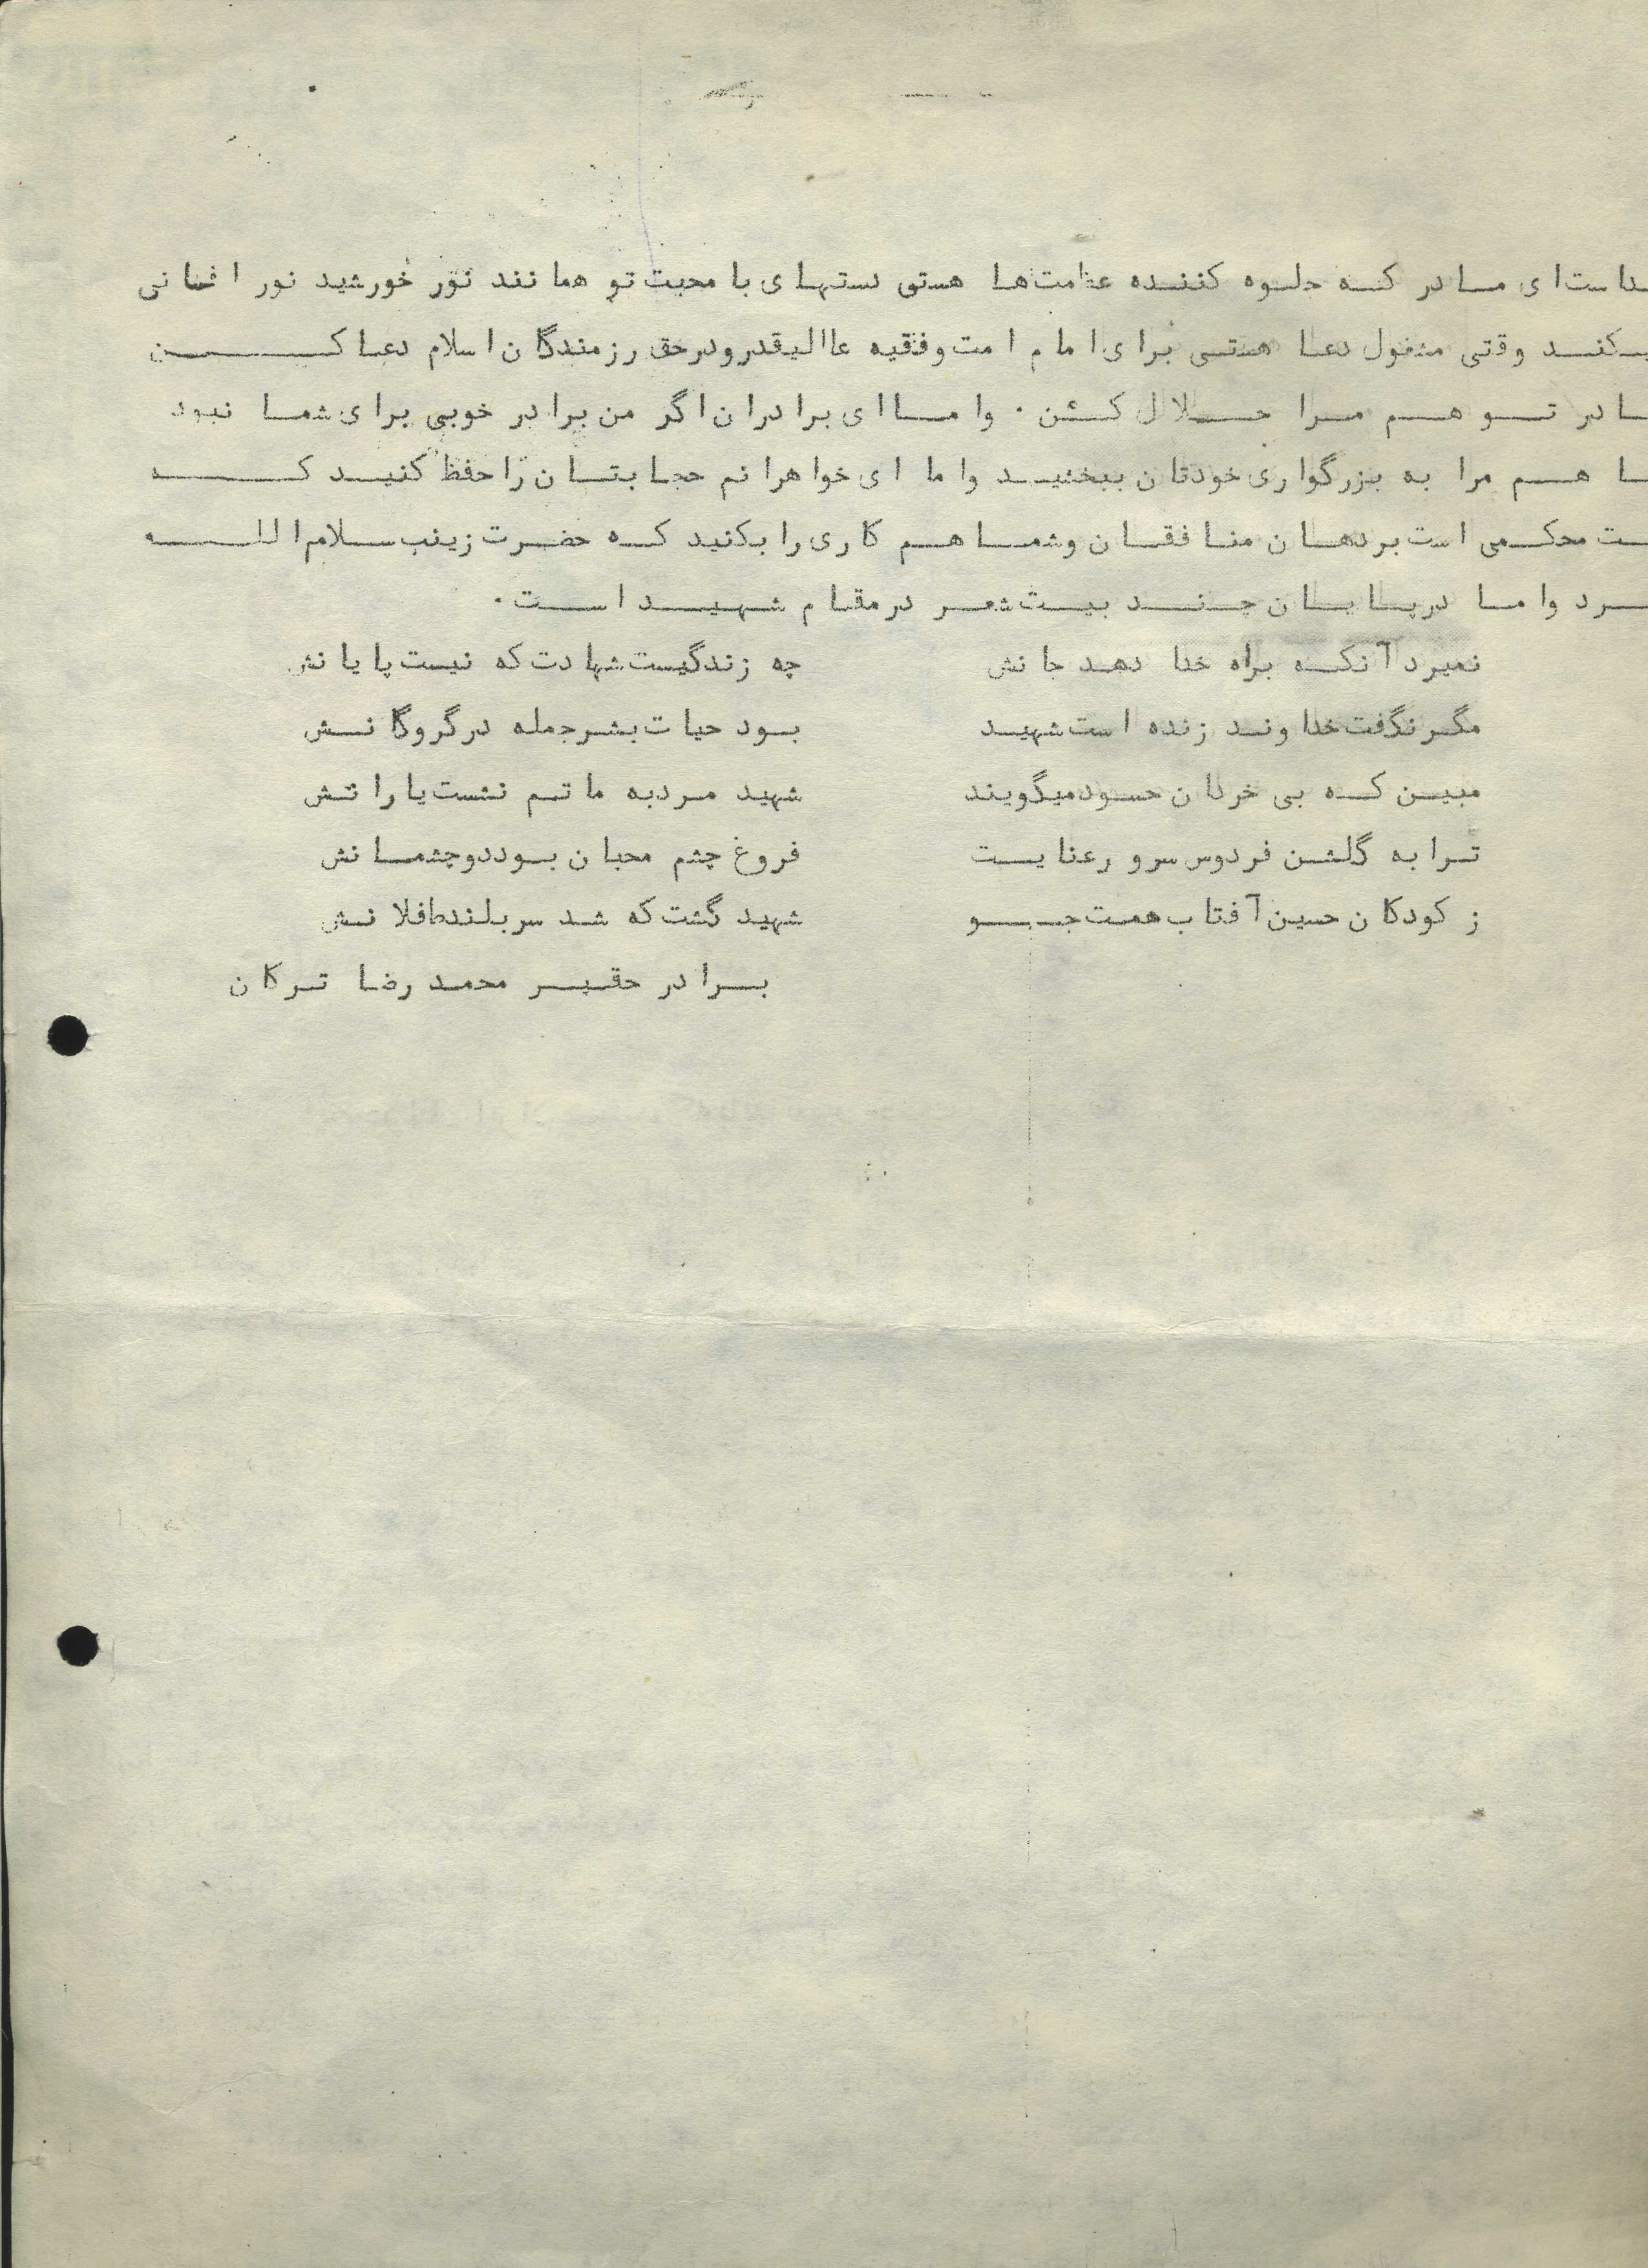 داست ای مادر که جلوه کننده عظمت‌ها هستی دستهای با محبت تو همانند نور خورشید نور افشانی
کند وقتی مشغول دعا هستی برای امام امت و فقیه عالیقدر و در حق رزمندگان اسلام دعا کن
ادر تو هم مرا حلال کن . و اما ای برادران اگر من برادر خوبی برای شما نبود
ا هم مرا به بزرگواری خودتان ببخشید و اما ای خواهرانم حجابتان را حفظ کنید که
ت محکمی است بر دهان منافقان و شما هم کاری را بکنید که حضرت زینب سلام الله
رد و اما در پایان چند بیت شعر در مقام شهید است .
نمیرد آنکه براه خدا دهد جانش چه زندگیست شهادت که نیست پایانش
مگر نگفت خداوند زنده است شهید بود حیات بشر جمله در گروگانش
مبین که بی خردان حسود میگویند شهید مرد به ماتم نشست یارانش
ترا به گلشن فردوس سرو رعنایست فروغ چشم محبان بود دو چشمانش
ز کودکان حسین آفتاب همت جو شهید گشت که شد سربلند طفلانش
برادر حقیر محمد رضا ترکان